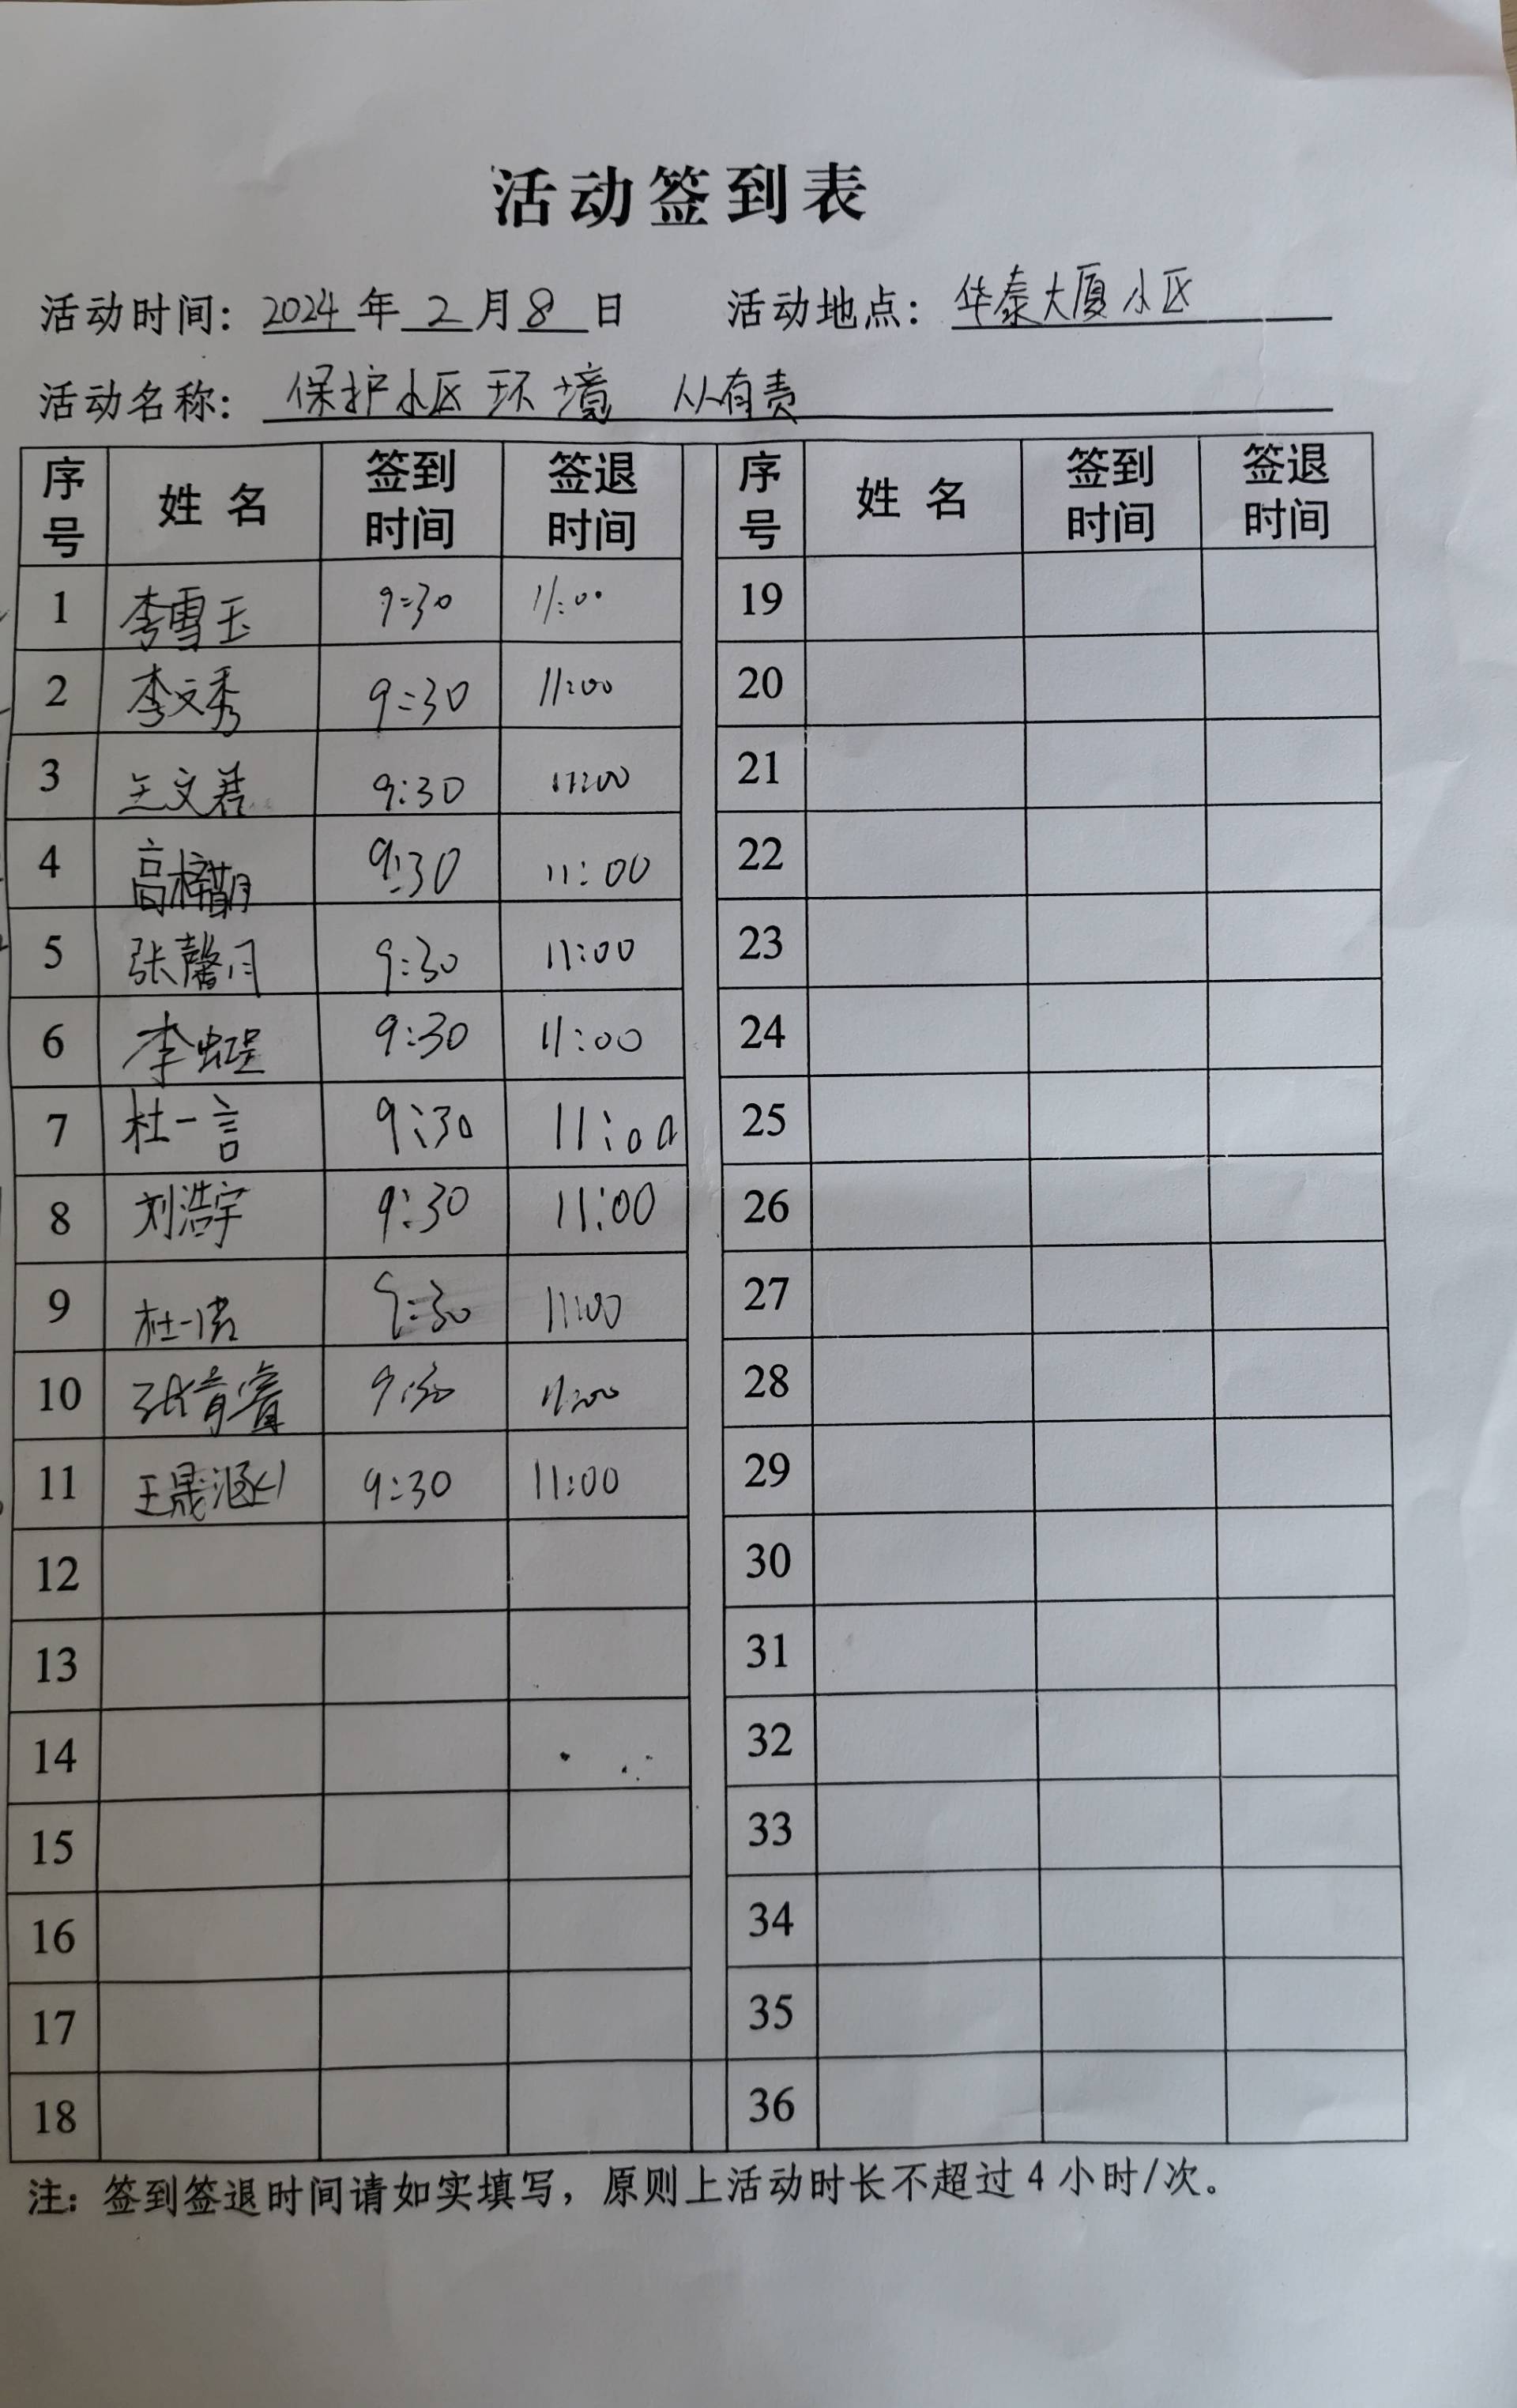 活动签到表
活动时间：2024年2月8日 活动地点：华泰大厦小区
活动名称：保护小区环境 从有责
序号 姓名 签到时间 签退时间 序号 姓名 签到时间 签退时间
1 李雪玉 9:30 11:00 19
2 李文秀 9:30 11:00 20
3 王文君 9:30 11:00 21
4 高梓 9:30 11:00 22
5 张馨月 9:30 11:00 23
6 李 9:30 11:00 24
7 杜一言 9:30 11:00 25
8 刘浩宇 9:30 11:00 26
9 杜一诺 9:30 11:00 27
10 张育睿 9:30 11:00 28
11 王晟涵 9:30 11:00 29
12 30
13 31
14 32
15 33
16 34
17 35
18 36
注：签到签退时间请如实填写，原则上活动时长不超过4小时/次。